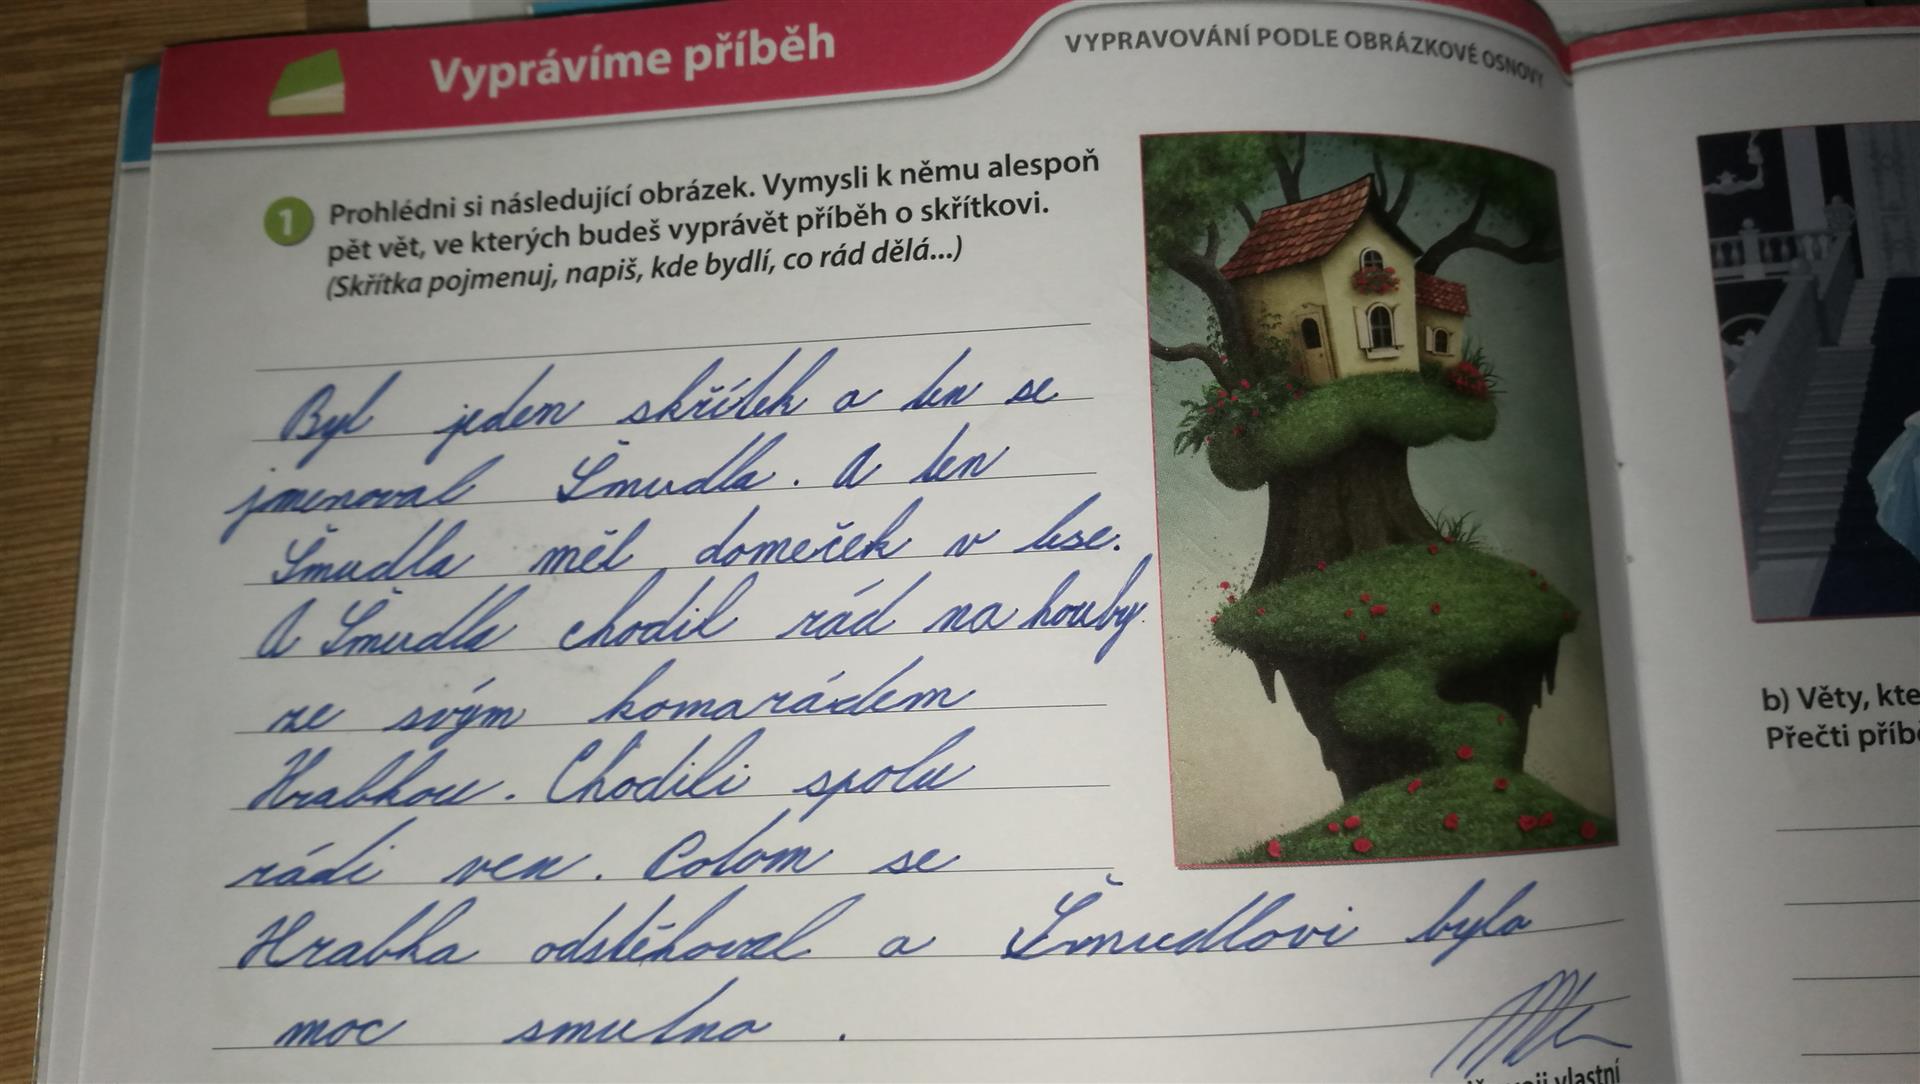 Vyprávíme příběh
VYPRAVOVÁNÍ PODLE OBRÁZKOVÉ OSNOVY
1 Prohlédni si následující obrázek. Vymysli k němu alespoň
pět vět, ve kterých budeš vyprávět příběh o skřítkovi.
(Skřítka pojmenuj, napiš, kde bydlí, co rád dělá...)
Byl jeden skřítek a ten se
jmenoval Šmudla. A ten
Šmudla měl domeček v lese.
A Šmudla chodil rád na houby
ze svým komarádem
Hrabkou. Chodili spolu
rádi ven. Potom se
Hrabka odstěhoval a Šmudlovi bylo
moc smutno.
vlastní
b) Věty, kte
Přečti příbě